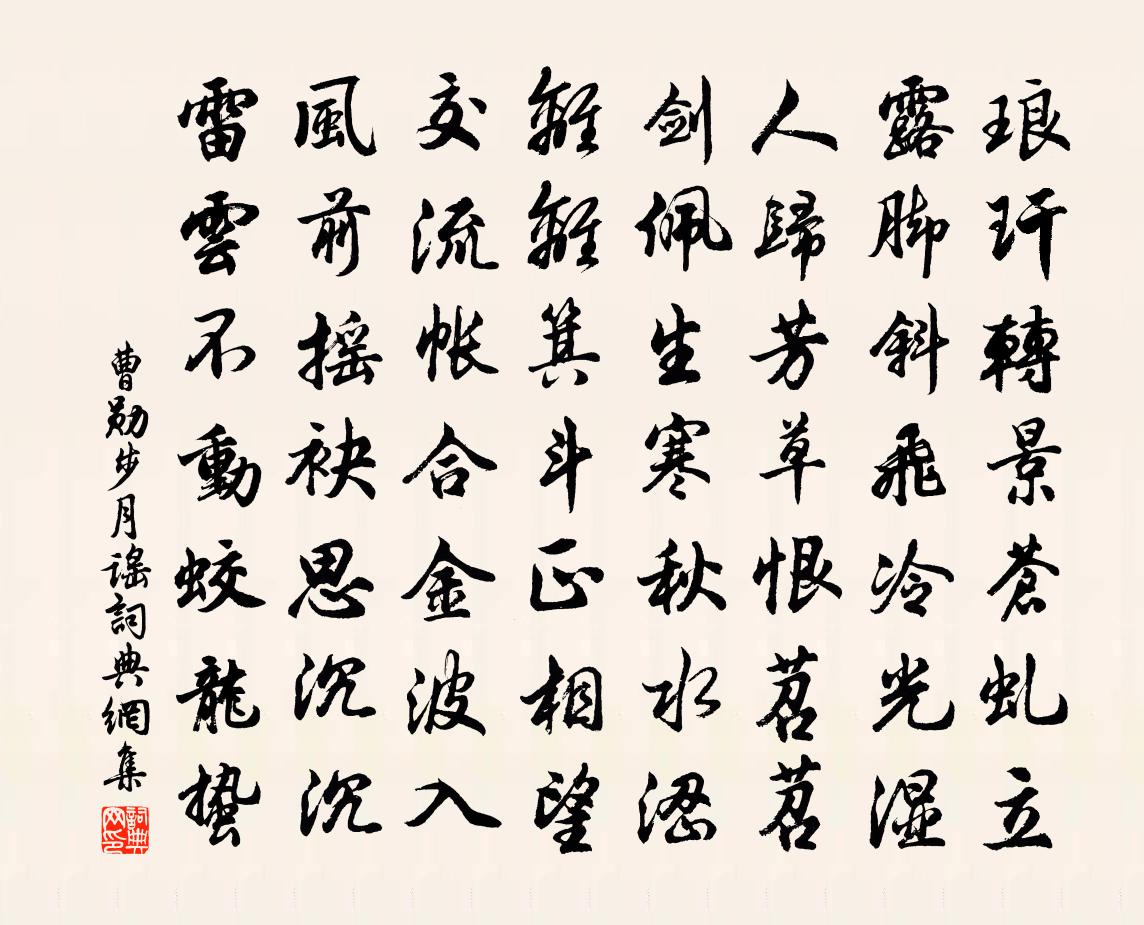 琅玕轉景蒼虬立
露脚斜飛冷光濕
人歸芳草恨苕苕
劍佩生寒秋水澀
離離箕斗正相望
交流帐合金波入
風前摇袂思沉沉
雷雲不動蛟龍蟄
曹勛步月謡詞典網集
詞典网印